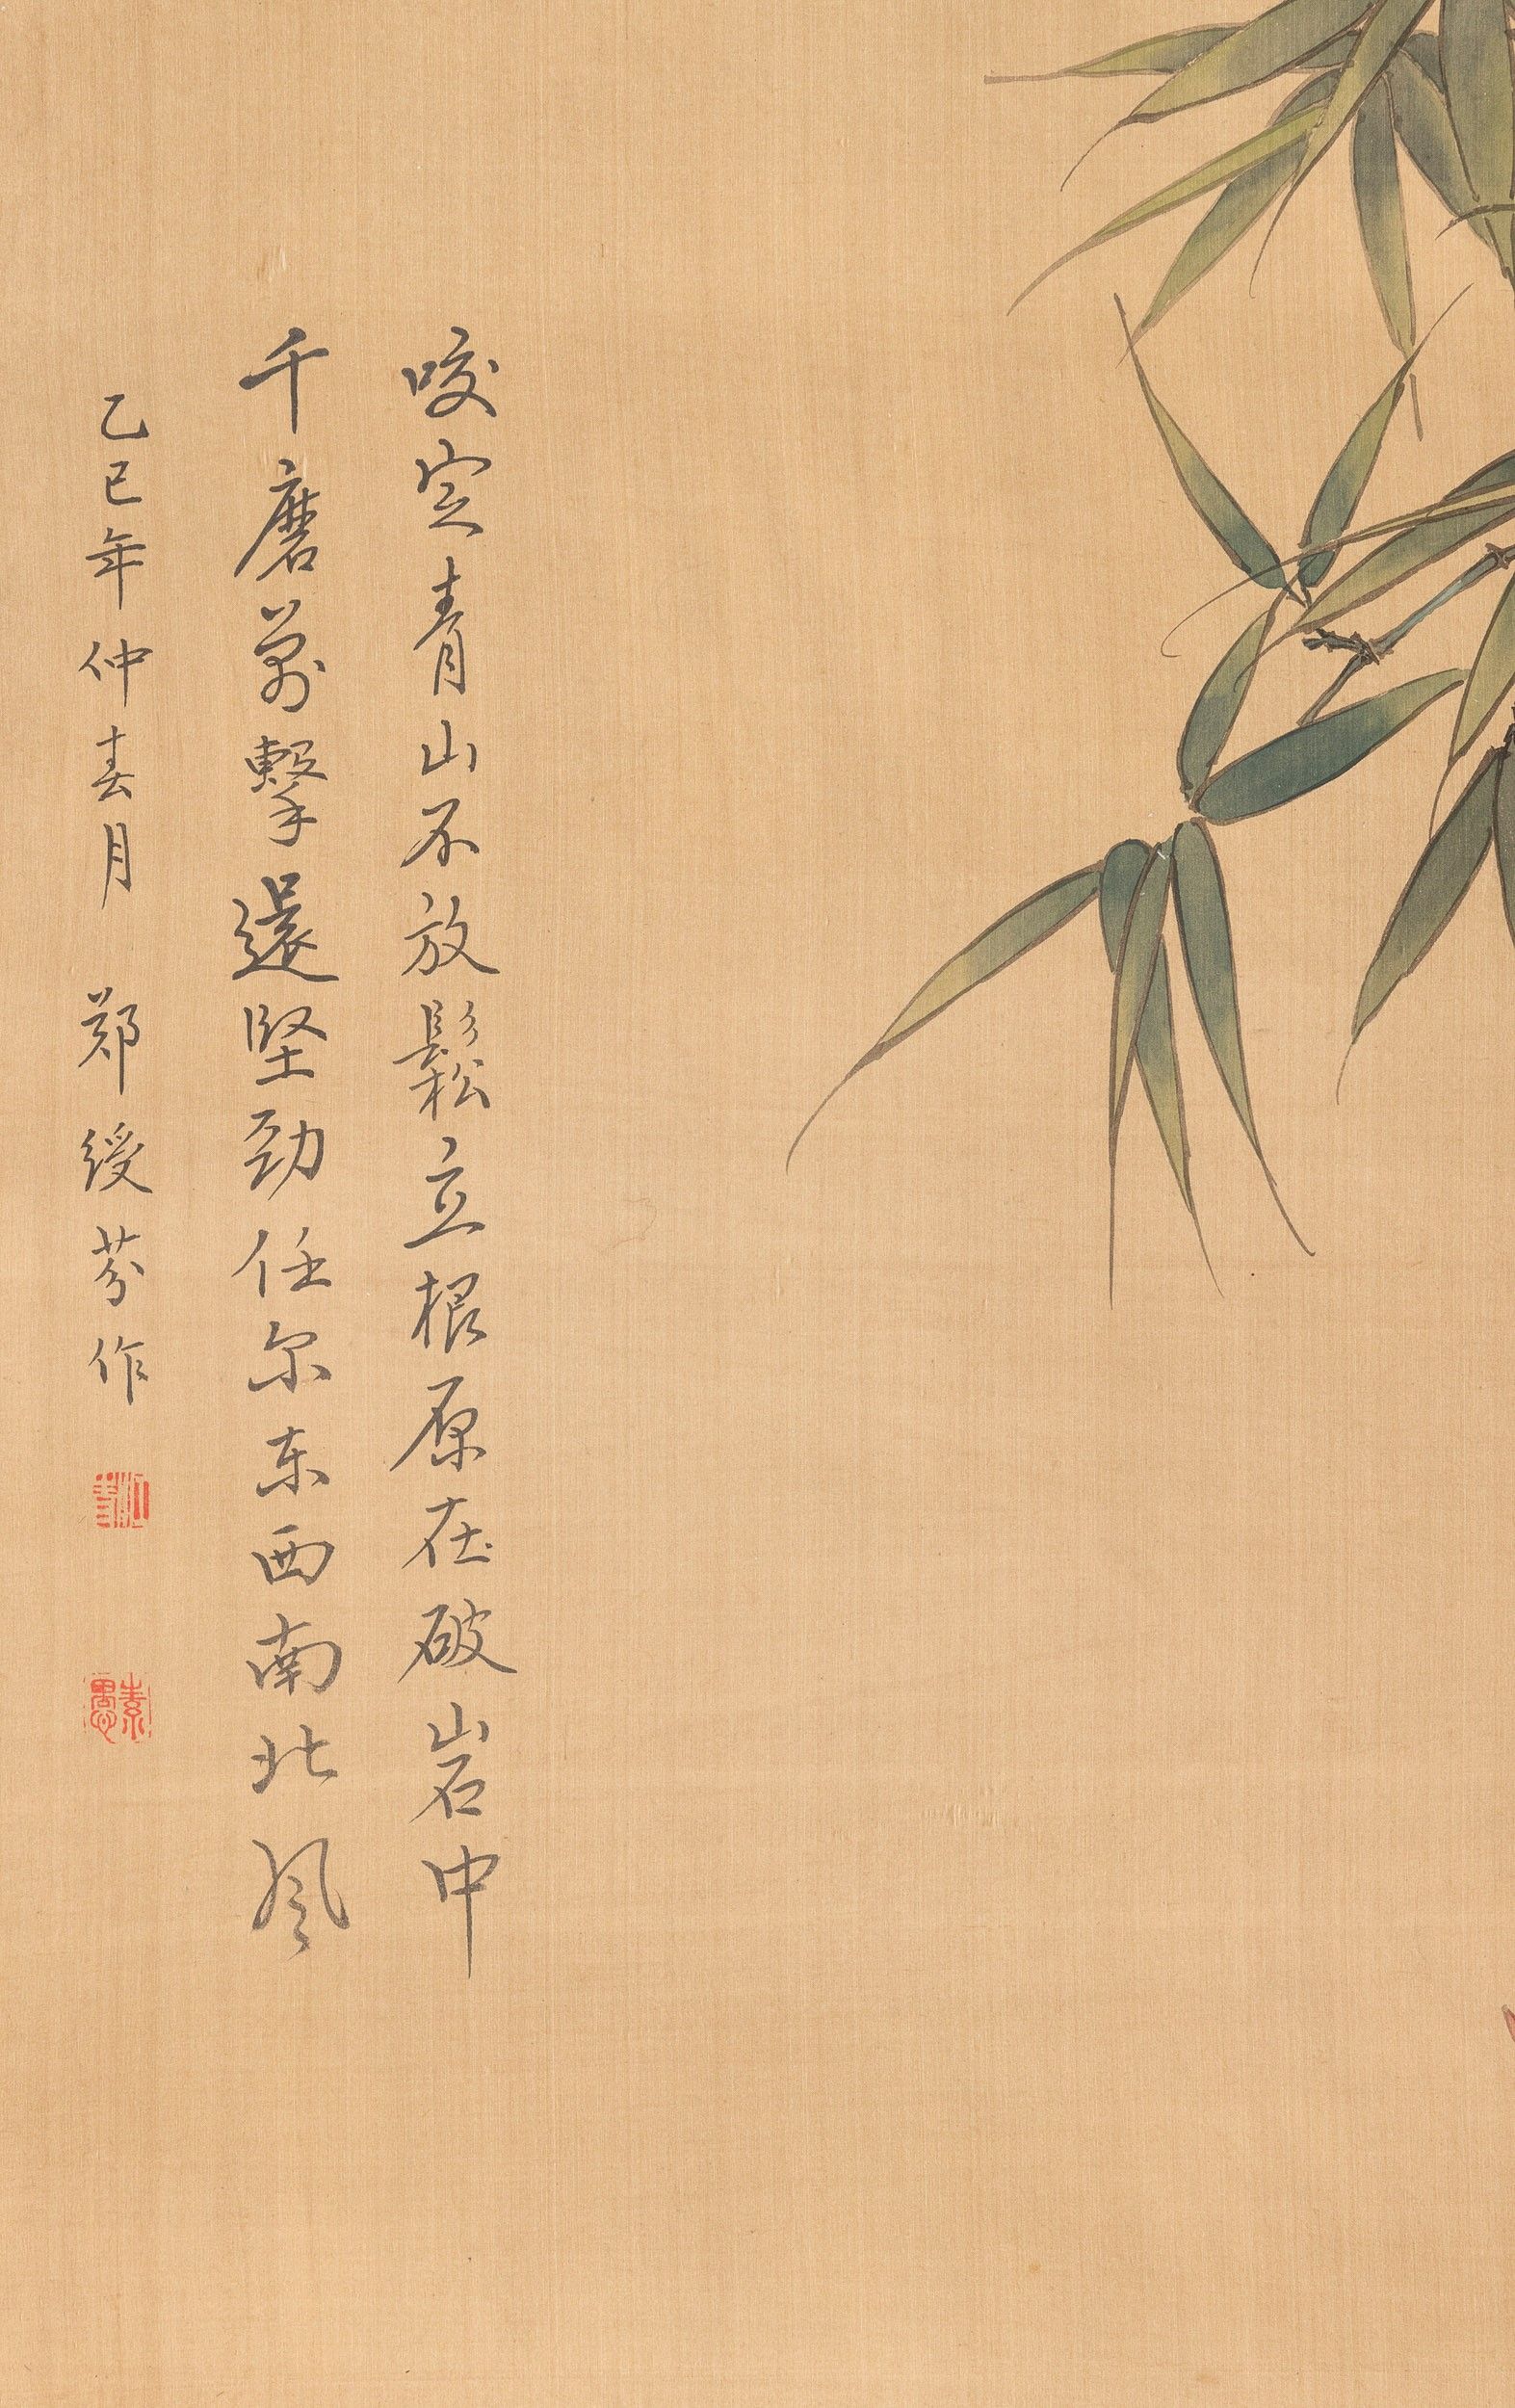 咬定青山不放鬆立根原在破岩中
千磨萬擊還堅劲任尔东西南北风
乙巳年仲春月 郑綬芬作
素愚